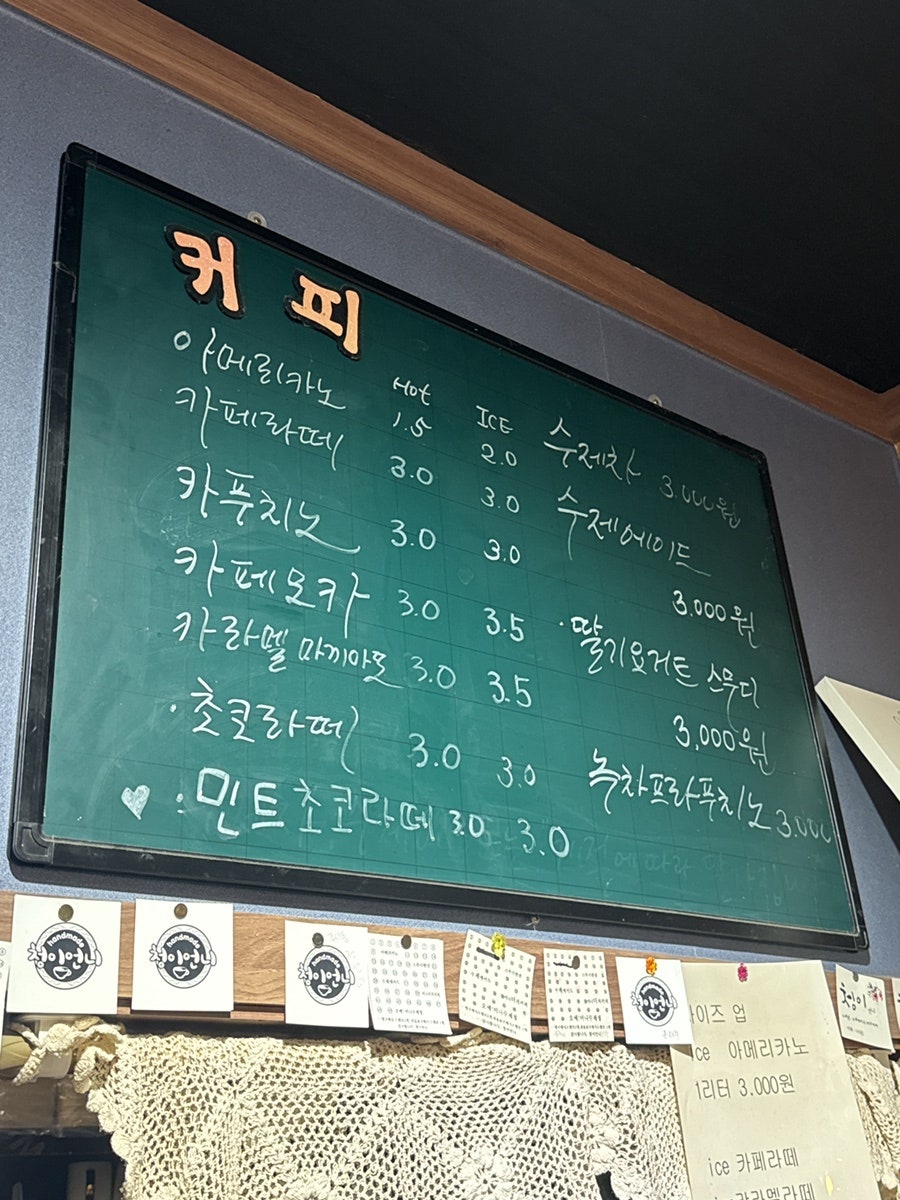 커피
Hot ICE
아메리카노 1.5 2.0
카페라떼 3.0 3.0
카푸치노 3.0 3.0
카페모카 3.0 3.5
카라멜 마끼아또 3.0 3.5
· 초코라떼 3.0 3.0
· 민트초코라떼 3.0 3.0
수제차 3.000원
수제에이드
3.000원
· 딸기요거트 스무디
3.000원
녹차프라푸치노 3.000
handmade
청이언니
handmade
청이언니
handmade
청이언니
handmade
청이언니
이즈 업
ice 아메리카노
1리터 3.000원
ice 카페라떼